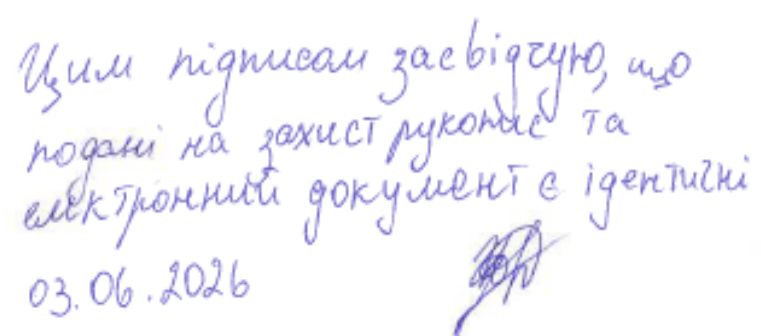 Цим підписом засвідчую, що
подані на захист рукопис та
електронний документ є ідентичні
03.06.2026